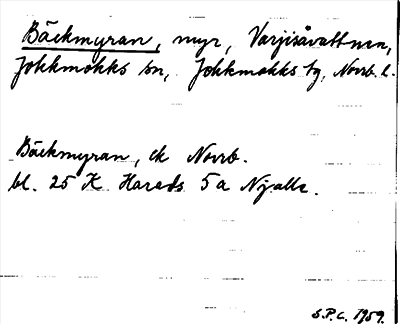 Bäckmyran, myr, Varjisåvattnen,
Jokkmokks sn, Jokkmokks tg, Norrb. l.
Bäckmyran, ek Norrb.
bl. 25 K Harads 5a Njalle.
S.P.C. 1959.